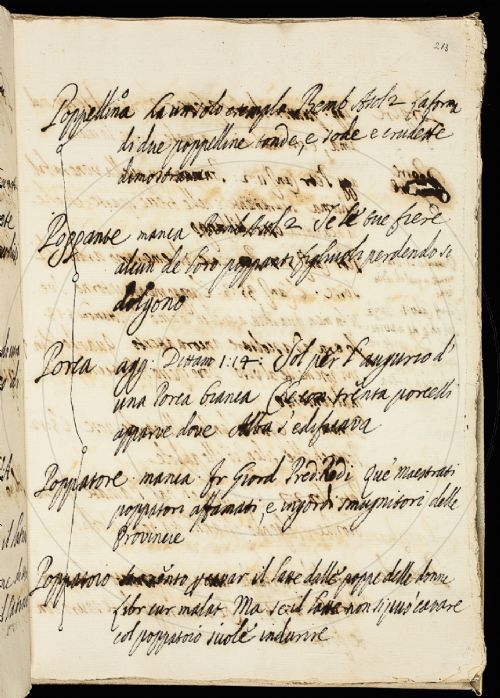 213
Poppellina ha un solo exemplo Bemb Asol 2 la forma
di due poppelline tonde, e sode e crudette
dimostrava
Poppante manca Bemb Asol 2 Se le tue fiere
alcun de loro poppanti figliuoli perdendo si
dolgono
Porca agg: Dittam 1:14: Sol per l'augurio d'
una Porca bianca Che con trenta porcelli
apparve dove Alba s'edificava
Poppatore manca Fr Giord Pred Redi Que maestrati
poppatori affamati, e ingordi smugnitori delle
Provincie
Poppatoio cavar il latte dalle poppe delle donne
Libr cur malat. Ma se il latte non si può cavare
col poppatoio suole indurire